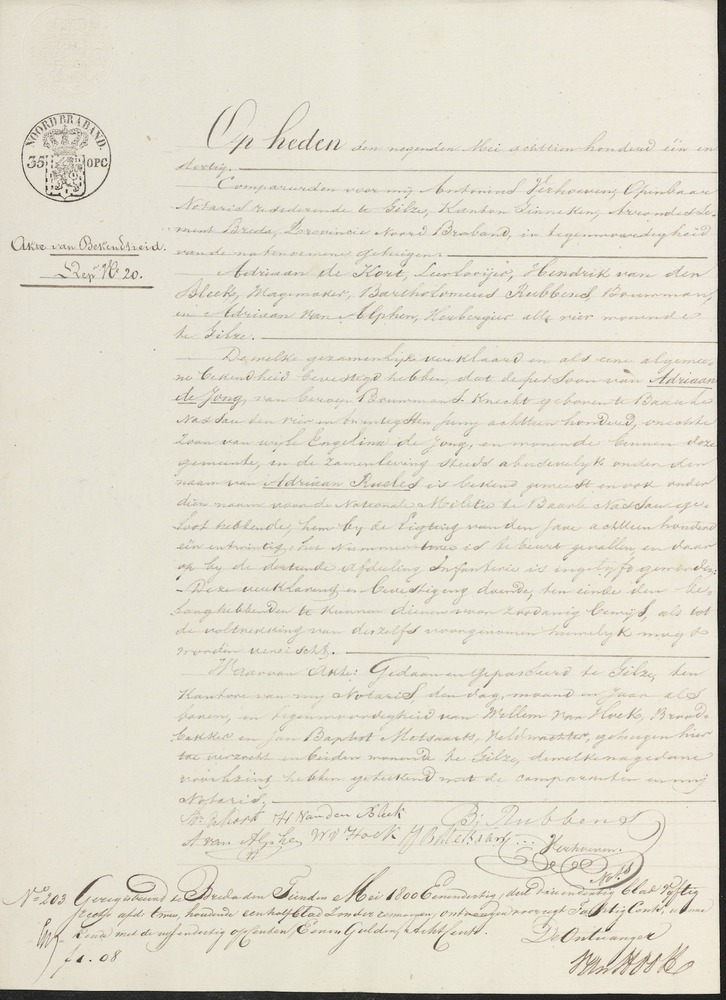 NOORD BRABAND.
35 OPC
Akte van Bekendheid.
Rep. N° 20.
Op heden den negenden Mei achttien honderd één en
dertig.
Compareerden voor mij Antonius Verhoeven, Openbaar
Notaris residerende te Gilze, Kanton Ginneken, Arrondisse-
ment Breda, Provincie Noord Braband, in tegenwoordigheid
van de natenoemene getuigen.
Adriaan de Kort, Leerlooijer, Hendrik van den
Bleek, Wagemaker, Bartholomeus Rubbens, Bouwman,
en Adriaan van Alphen, Herbergier alle vier wonende
te Gilze.
Dewelke gezamenlijk verklaard en als eene algemee-
ne bekendheid bevestigd hebben, dat de persoon van Adriaan
de Jong, van beroep Bouwmans Knecht geboren te Baarle
Nassau den vier en twintigsten Juny achttien honderd, onechte
Zoon van wijle Engelina de Jong, en wonende binnen deze
gemeente, in de Zamenleving steeds abusivelyk onder den
naam van Adriaan is bekend geweest en ook onder
dien naam voor de Nationale Militie te Baarle Nassau ge-
loot hebbende, hem by de Ligting van den Jare achttien honderd
één en twintig, het Nummer twee is te beurt gevallen, en daar
op by de dertiende Afdeeling Infanterie is ingelyfd geworden.
Deze verklaring en bevestiging doende, ten einde den be-
langhebbenden te kunnen dienen voor zoodanig bewijs, als tot
de voltrekking van deszelfs voorgenomen huwelyk mogt
worden vereischt.
Waarvan Akte: Gedaan en Gepasseerd te Gilze, ten
Kantore van my Notaris, den dag, maand en Jaar als
boven, en tegenwoordigheid van Willem van Hoek, Brood-
bakker en Jan Baptist Molsaarts, Veldwachter, getuigen hier
toe verzocht en beiden wonende te Gilze, dewelke na gedane
voorlezing hebben geteekend met de comparanten en mij
Notaris.
H van den Bleek B: Rubbens
A van Alphen W V Hoek Verhoeven.
Not.s
N° 203 Geregistreerd te Breda den Tienden Mei 1800 Eenendertig, deel
houdende een half blad zonder renvooijen, ontvangen voor regt Tachtig Cents,
met de opcenten, Eenen Gulden Acht Cent.
f 1.08
De Ontvanger